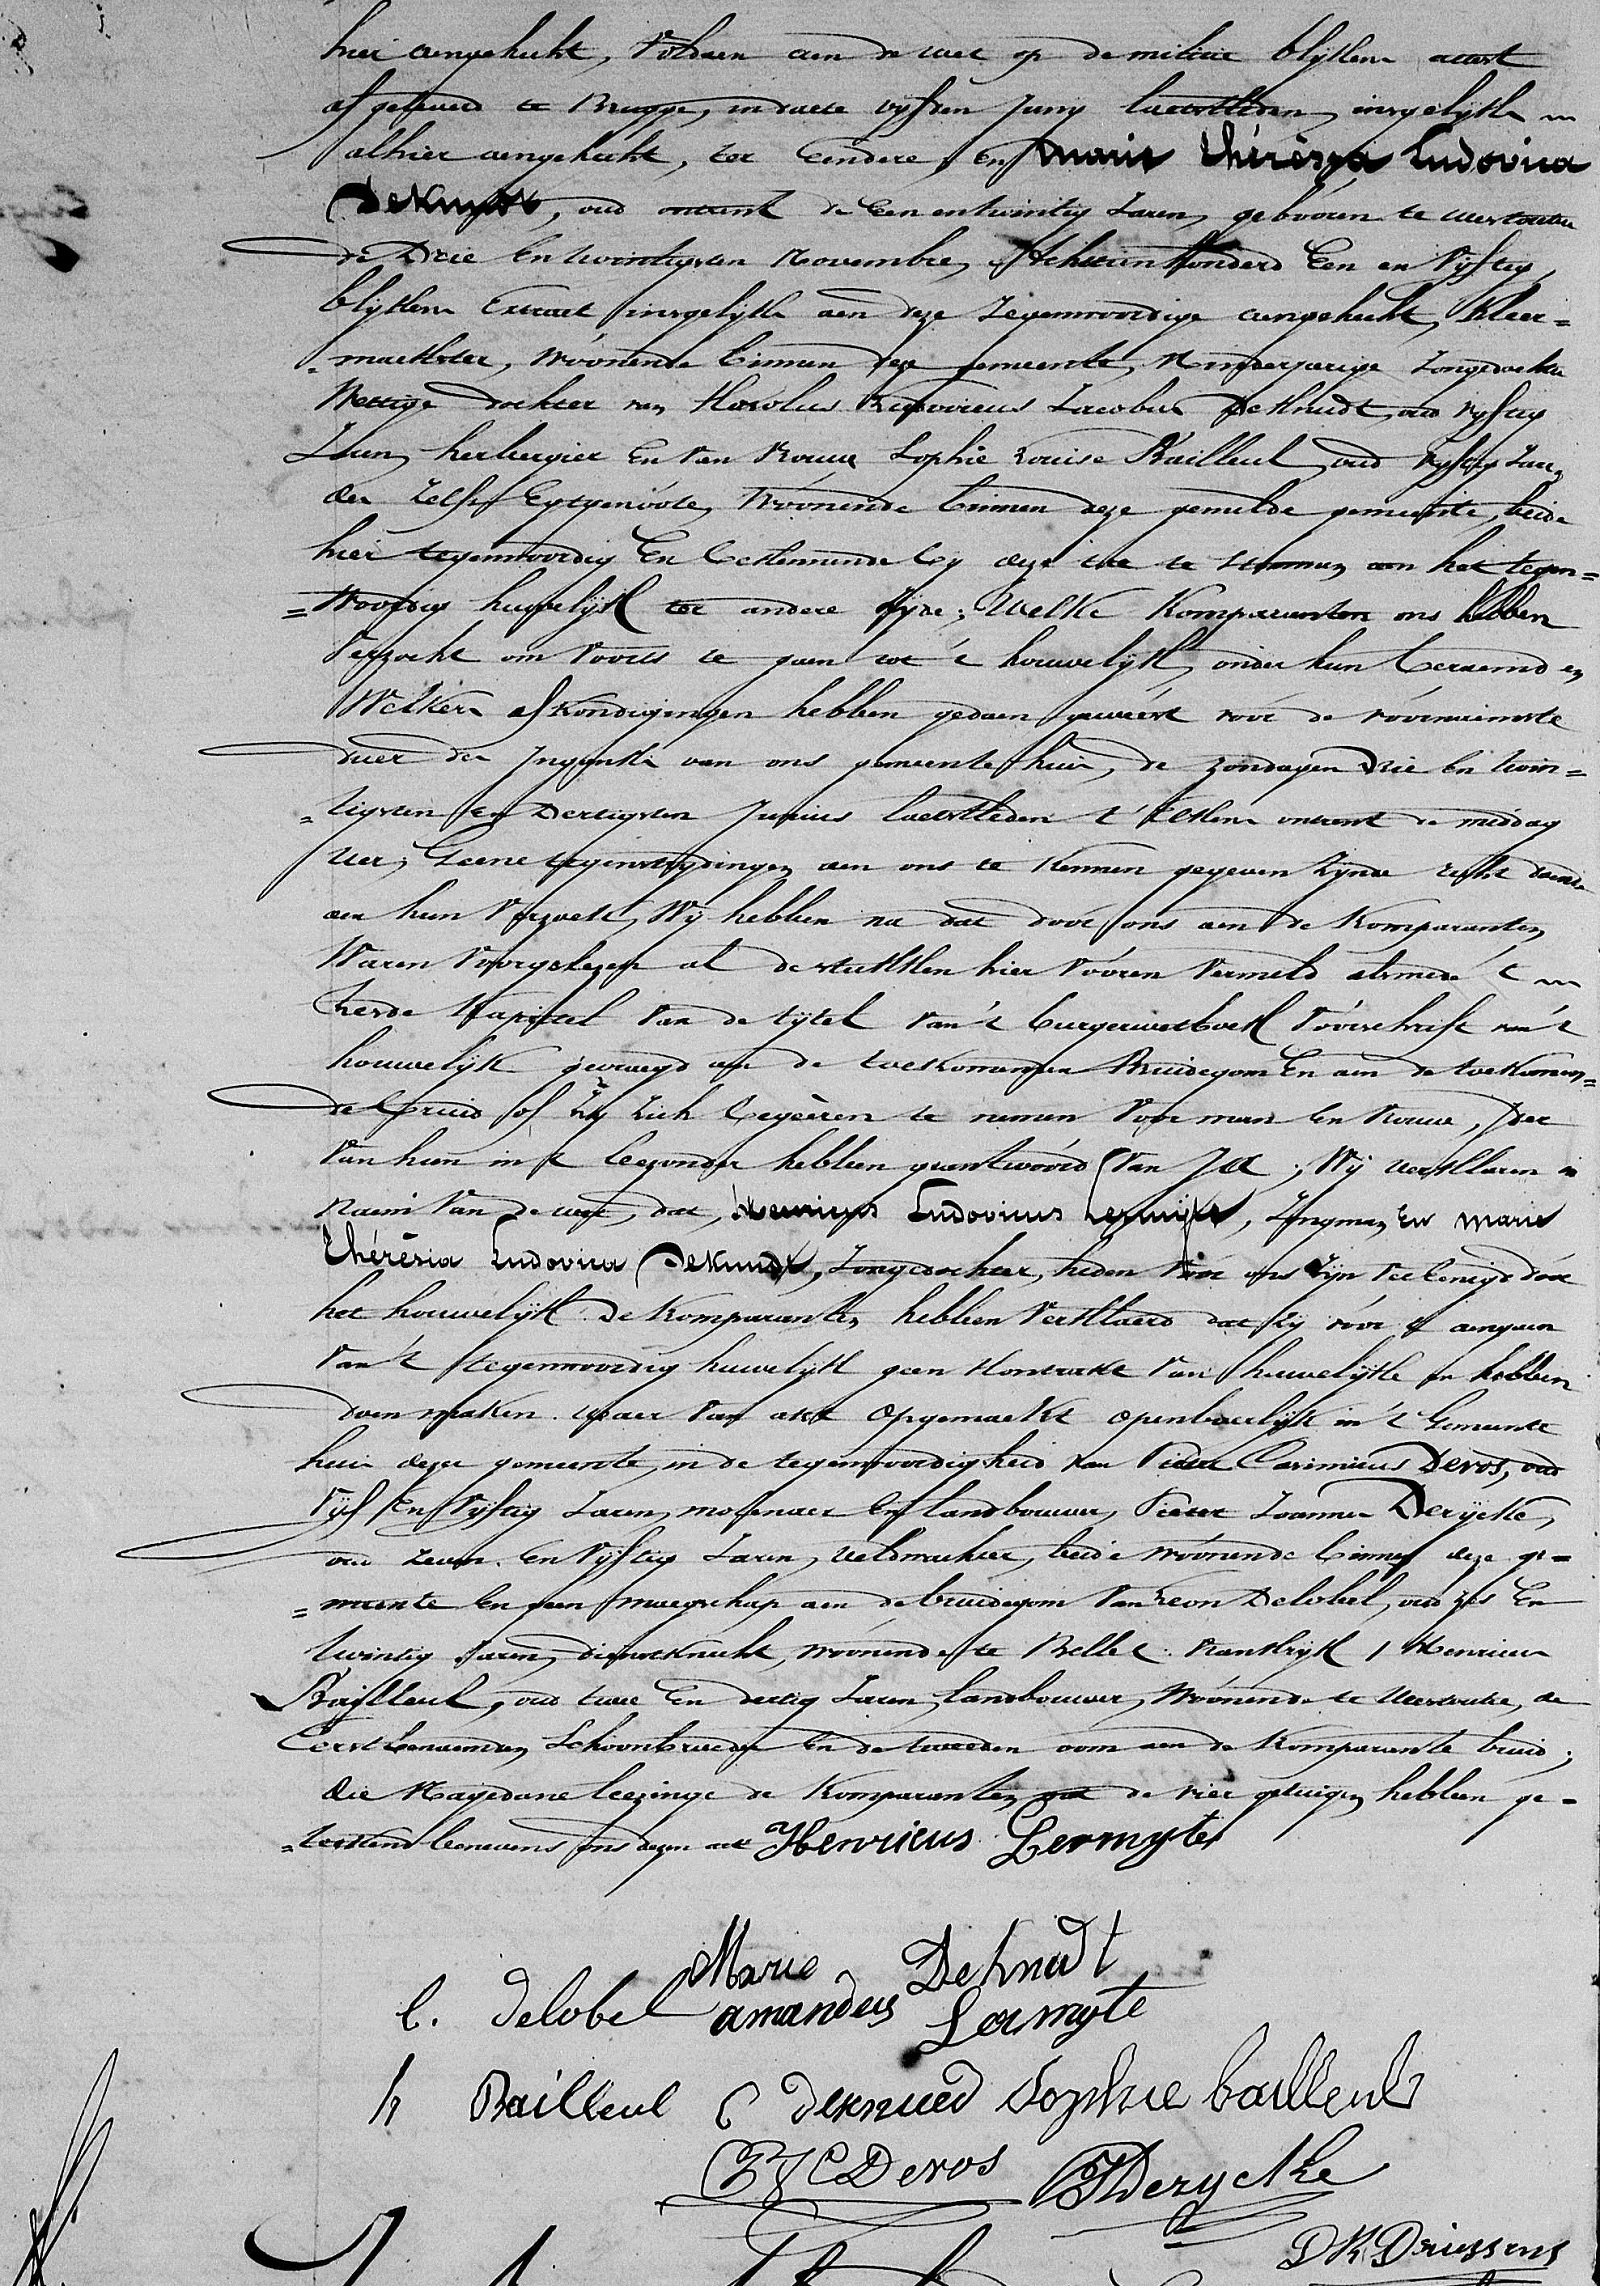 hier aengehecht, Voldaen aen de wet op de militie blijkens attest
afgeleverd te Brugge, in daete vijfden Juny laetstleden, insgelijks
alhier aengehecht, ter Eendere, En Marie Thérèsia Ludovica
DeKnudt, oud ontrent de Een en twintig Jaren, gebóoren te Westouter
de Drie En twintigsten Novembre, Achttien Honderd Een en Vijftig,
blijkens Extract insgelijks aen deze Tegenwoordige aengehecht, Kleer=
=maekster, Wóonende binnen deze gemeente, Minderjarige Jongedochter
Wettige dochter van Karolus Ludovicus Jacobus DeKnudt, oud vijftig
Jaren, herbergier En Van Vrouw Sophie Louise Bailleul, oud vijftig Jaren
des Zelfs Egtgenóote, Wóonende binnen deze gemelde gemeente, beide
hier tegenwoordig En Bestemmende by deze toe te stemmen aen het tegen=
=Woordig huwelijk ter andere zijde; Welke Komparanten ons hebben
Verzocht om Voorts te gaen tot 't houwelijk, onder hun beraemd en
Welkers afkondigingen hebben gedaen geweést vóór de vóornaemste
duer der Ingank van ons gemeentehuis, de zondagen Drie En twin=
=tigsten En Dertigsten Junius laetstleden t' Elkens ontrent de middag
uer, Geene tegenstrydingen aen ons te Kennen gegeven Zynde recht doende
aen hun Verzoek, Wij hebben na dat door ons aen de Komparanten
Waren Voorgelezen al de stukken hier Vóoren Vermeld alsmede 't
zesde Kapittel Van de tytel Van 't burgerwetboek Vóorschrift van 't
houwelijk gevraegd aen de toekomenden Bruidegom En aen de toekomen=
de bruid of Zy Zich begeéren te nemen Voor man En Vrouw, Der
Van hun in 't bezonder hebbende geantwóord Van Ja; Wij verklaren in
Naem Van de wet, dat, Henricus Ludovicus Lermijte, Jongman, En Marie
Thérèsia Ludovica DeKnudt, Jongedochter, heden Vóor ons Zijn Vereenigd dóor
het houwelijk. De Komparanten hebben Verklaerd dat Zy vóor 't aengaen
Van 't tegenwoordig huwelijk geen Kontrakt Van huwelijk en hebben
doen maken. Waer Van akt opgemaekt openbaerlijk in 't Gemeente
huis dezer gemeente, in de tegenwoordigheid van Pieter Casimirus Devos, oud
Vijf En Vijftig Jaren, molenaer En landbouwer, Pieter Joannes Derycke,
oud Zeven En Vijftig Jaren, veldwachter, beide wóonende binnen deze ge=
=meente En geen maegschap aen de bruidegom Van Leon Delobel, oud zes En
twintig Jaren, dienstknecht, wóonende te Belle: Vrankrijk / Henricus
Bailleul, oud twee En dertig Jaren, landbouwer, Wóonende te Westouter, de
Eerst benaemden Schoonbroeder En de tweeden oom aen de Komparante bruid;
die Nagedane leezinge de Komparanten en de vier getuigen hebben ge=
=teekend benevens ons dezen akt Henricus Lermyte
Marie DeKnudt
l. delobel amandus Lermyte
h Bailleul C deknued Sophie bailleul
P C Devos PJ Derycke
D K Driessens